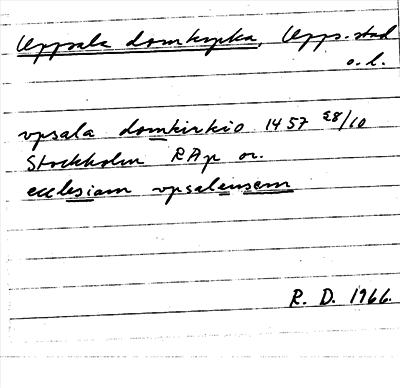 Uppsala domkyrka, Upps. stad
o. l.
vpsala domkirkio 1457 28/10
Stockholm RAp or.
ecclesiam vpsalensem
R. D. 1966.